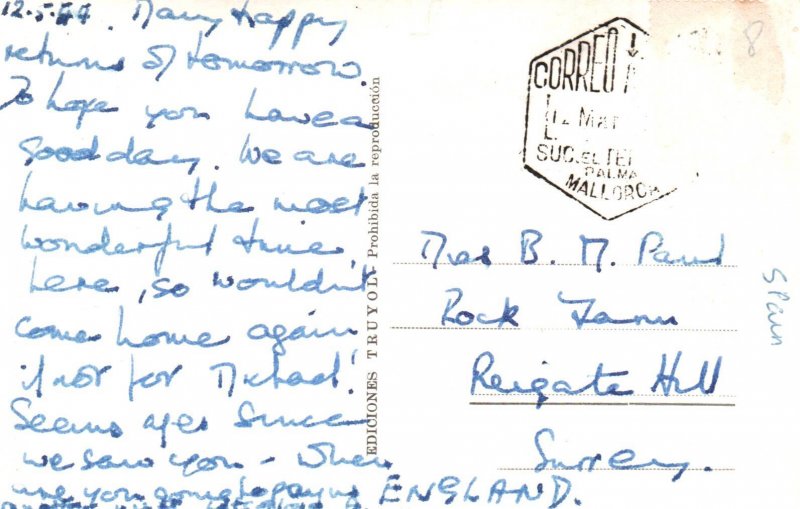 12.5.77. Many Happy
returns of tomorrow.
To hope you have a
good day. We are
having the most
wonderful time
here, so wouldn't
come home again
if not for Michael!
Seems ages since
we saw you - when
are you going to pay us
EDICIONES TRUYOL Prohibida la reproducción
CORREO
12 MAY
SUC. EL TER
PALMA
MALLORCA
8
Mrs B. M. Paul
Rock Farm
Reigate Hill
Surrey.
ENGLAND.
Spain